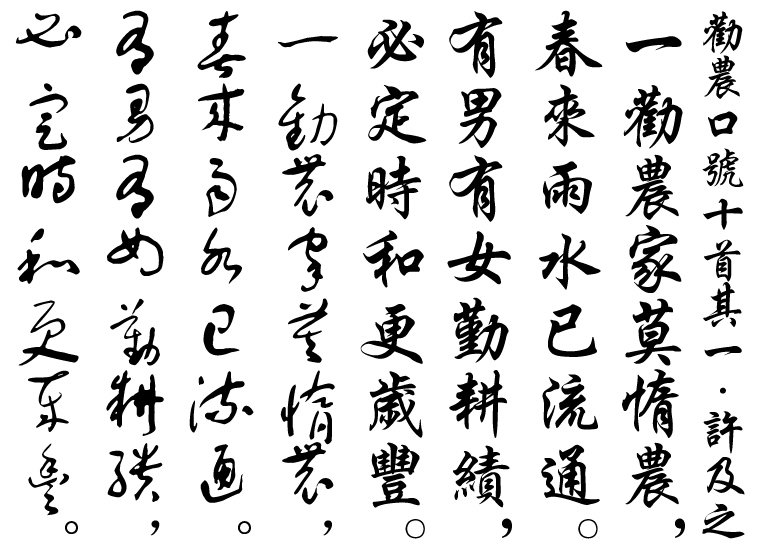 勸農口號十首其一·許及之
一勸農家莫惰農，
春來雨水已流通。
有男有女勤耕績，
必定時和更歲豐。
一勸農家莫惰農，
春來雨水已流通。
有男有女勤耕績，
必定時和更歲豐。